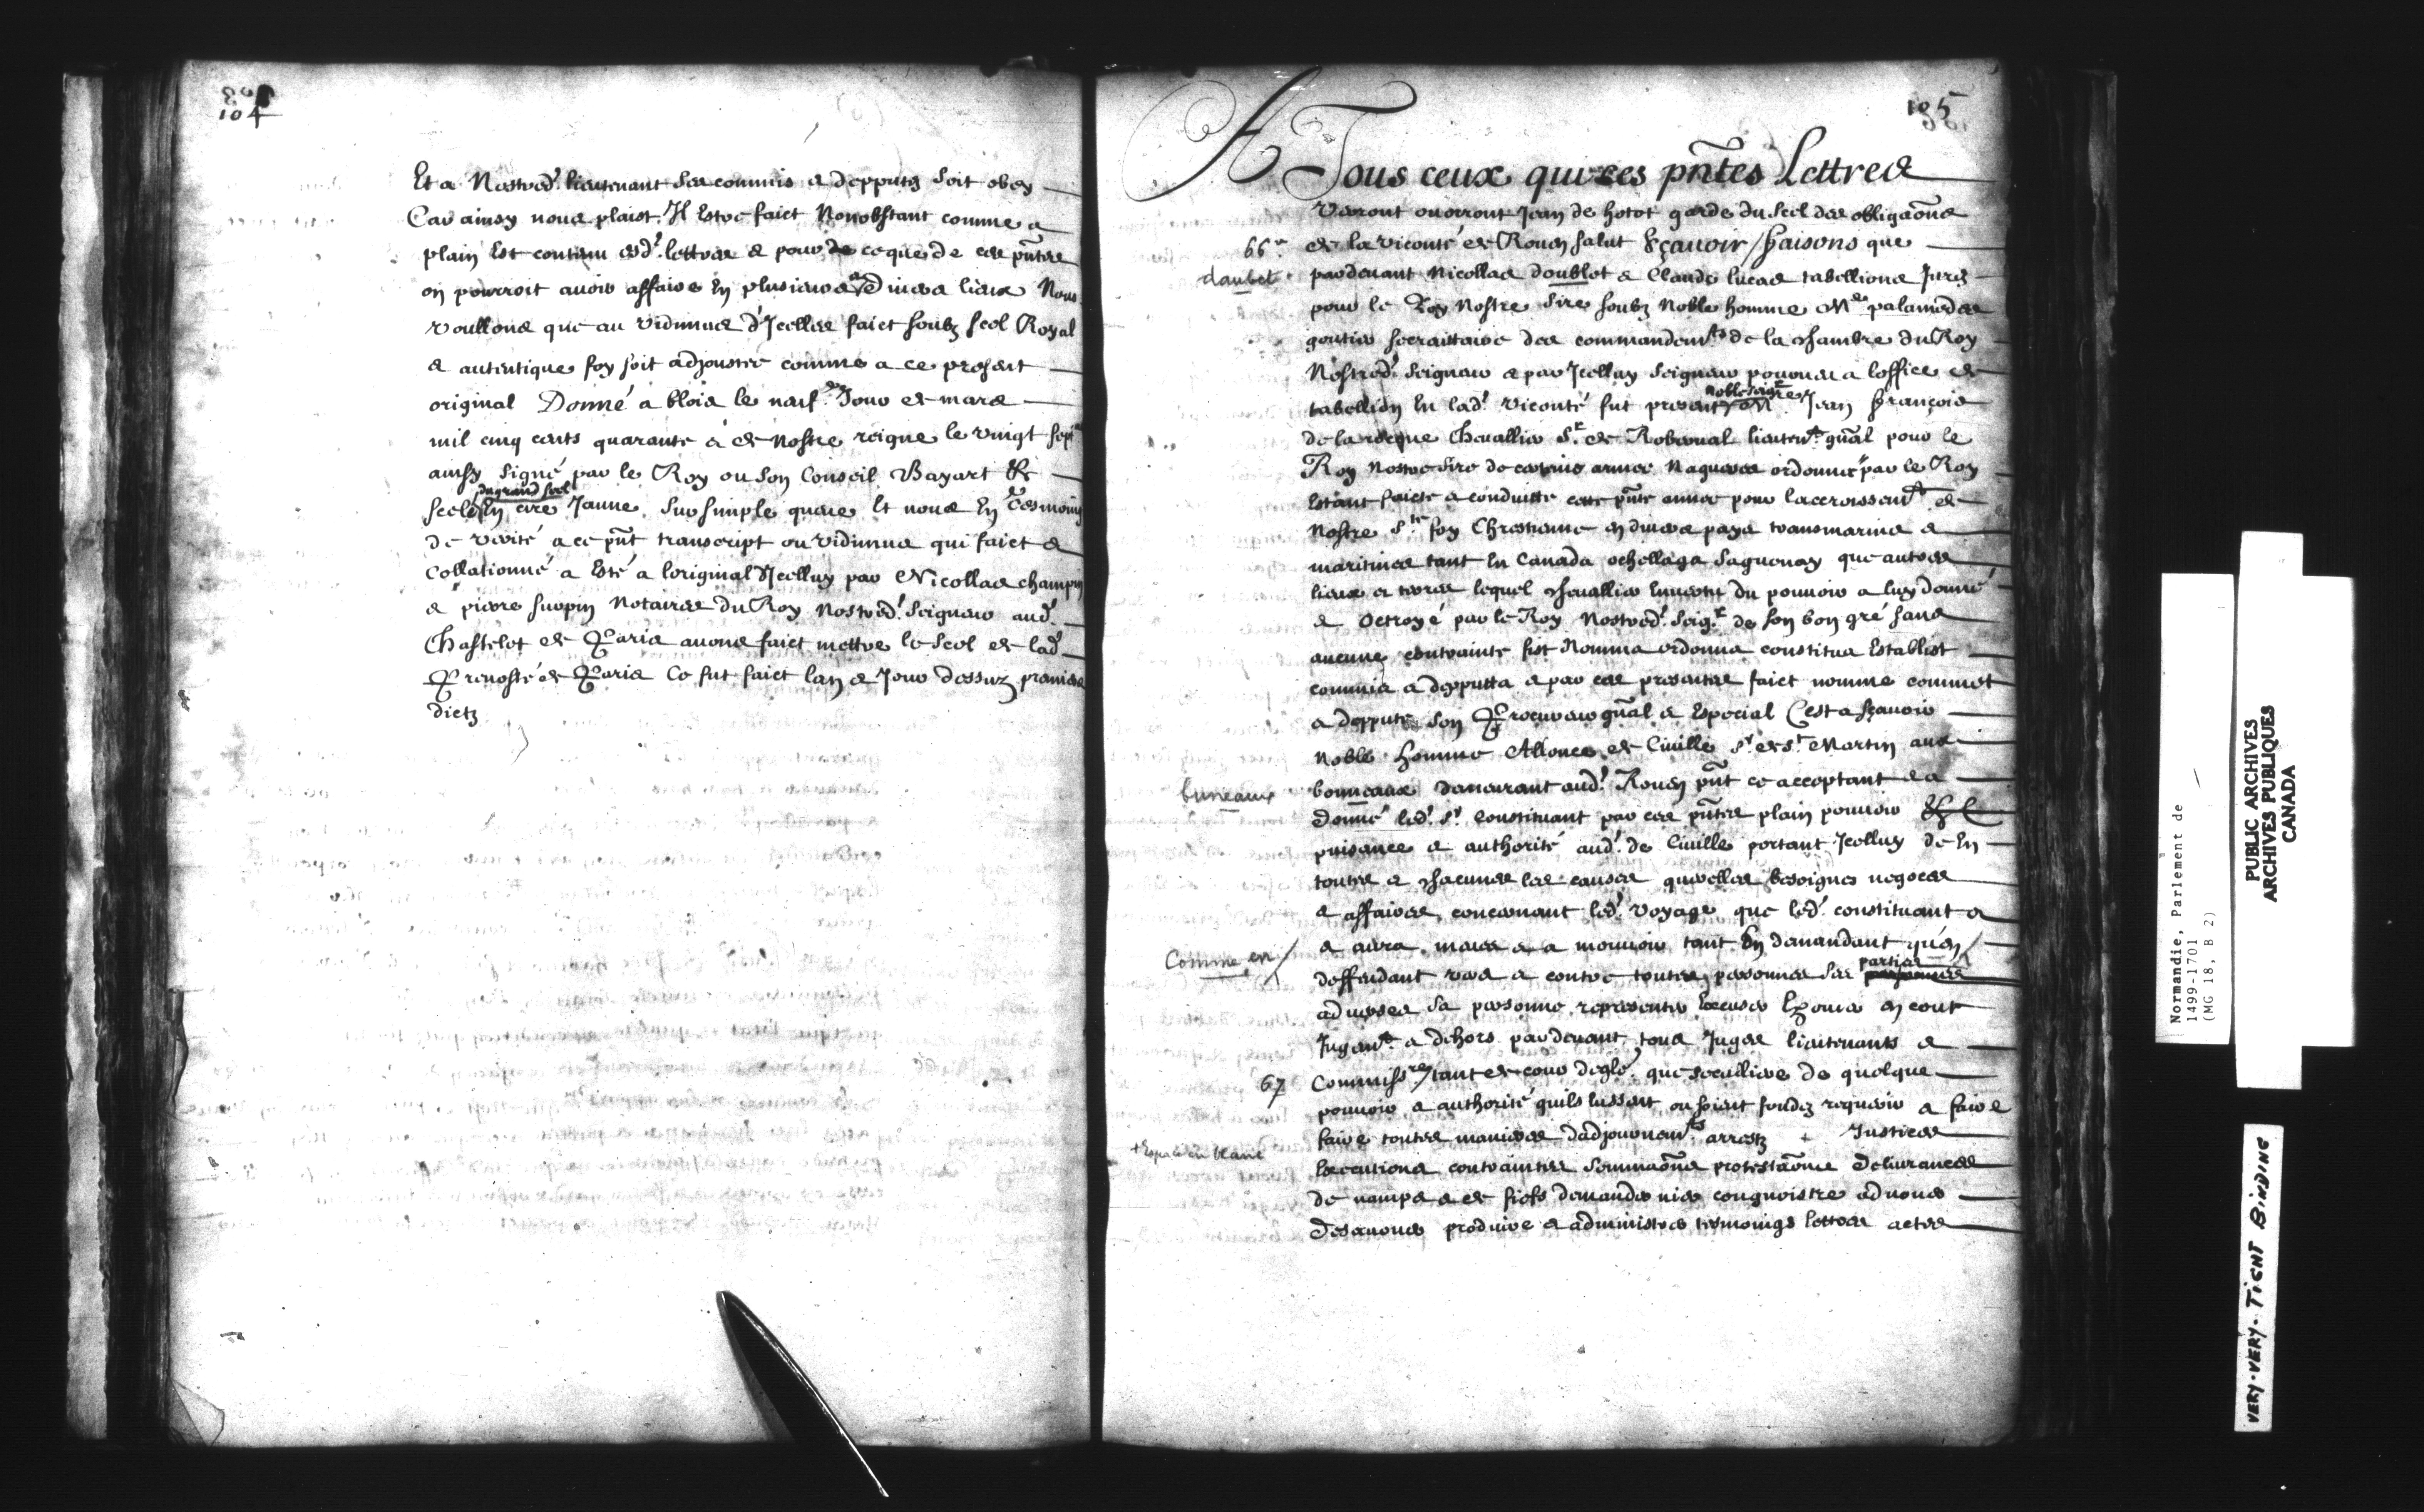 104
Et a Nostred.t lieutenant ses commis & depputez soit obey
Car ainsy nous plaist. Il Estre faict Nonobstant comme a
plain Est contenu esd.t lettres & pour ce que de ces pñtes
on pourroit avoir affaire En plusieurs & divers lieux Nous
voullons que au vidimus d'Icelles faict soubz scel Royal
& autentique foy soit adjoustée comme a ce present
original Donné a blois le neuf.me Jour de mars
mil cinq cents quarante & de Nostre reigne le vingt sept
ainsy signé par le Roy ou son Conseil Bayart &
scelé du grand scel En cire Jaune sur simple queue Et nous En tesmoing
de vérité a ce pñt transcript ou vidimus qui faict &
Collationné a Esté a loriginal d'Icelluy par Nicollas champin
& pierre supin Notaires du Roy Nostred.t Seigneur aud.t
Chastelet de Paris avons faict mettre le Scel de lad.
Prevosté de Paris Ce fut faict lan & Jour dessuz premiers
dietz
105
A Tous ceux qui ces pñtes Lettres
Verront ou orront Jean de hotot garde du Scel des obligaõns
66.e de la viconté de Rouen salut Sçavoir / faisons que
daubet pardevant Nicollas doublet & Claude lucas tabellions Jurez
pour le Roy Nostre Sire soubz Noble homme M.re palamedes
gontier secraittaire des commandem.ts de la chambre du Roy
Nostred.t Seigneur & par Icelluy Seigneur pourveu a loffice de
tabellion En lad.t viconté fut present noble seig.r Jean françois
de la rocque Chevallier S.r de Roberval lieuten.t gñal pour le
Roy Nostre Sire de certaine armée Naguères ordonnée par le Roy
Estant faicte & conduitte cette pñte année pour laccroissem.t de
Nostre S.te foy Chrestienne en divers pays transmarins &
maritimes tant En Canada ochellaga Saguenay que autres
lieux & terres lequel chevallier En vertu du pouvoir a luy donné
& octroyé par le Roy Nostred.t Seig.r de son bon gré sans
aucune contrainte fist Nomma ordonna constitua Establist
commis & depputta & par ces presentes faict nomme commet
& deppute son Procureur gñal & Especial C'est a sçavoir
Noble homme Allonce de Civille S.r de S.t Martin aux
buneaux bonneaux demeurant aud.t Rouen pñt ce acceptant & a
donné led.t S.r Constituant par ces pñtes plain pouvoir
puisance & authorité aud.t de Civille portant Icelluy de En
toutes & chacunes les causes querelles besoignes negoces
& affaires concernant led.t voyage que led.t constituant a
& aura meues & a mouvoir tant En demandant qu'en
Comme en / deffendant vers & contre toutes personnes ses parties
adverses sa personne representer Excuser Exonier en court
Jugem.t & dehors pardevant tous Juges lieutenants &
67 Commiss.res tant de cour d'eglé. que seculliere de quelque
pouvoir & authorité quils Eussent ou soient fondez requerir & faire
+ Espace en blanc faire toutes manieres dadjournem.ts arrestz + Justices
Executions contraintes sommaõns protestaõns delivrances
de namps & de fiefs demander nier congnoistre advouer
desavouer produire & administrer tesmoings lettres actes
Normandie, Parlement de
1499-1701
(MG 18, B 2)
PUBLIC ARCHIVES
ARCHIVES PUBLIQUES
CANADA
VERY-VERY-TIGHT BINDING